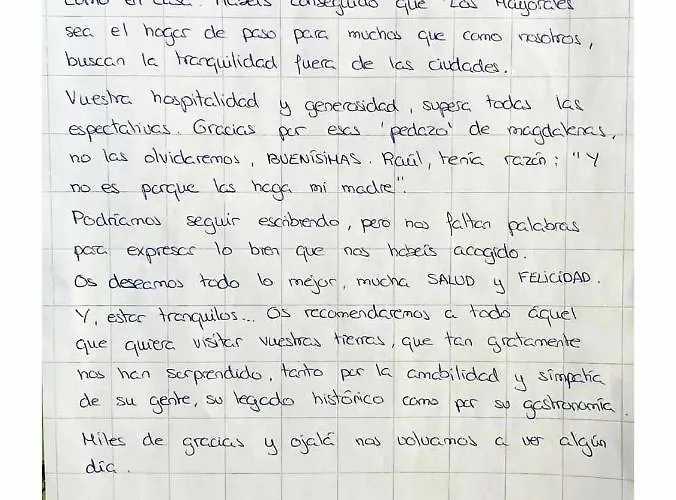 como en casa. Habéis conseguido que Los Mayorales
sea el hogar de paso para muchos que como nosotros,
buscan la tranquilidad fuera de las ciudades.
Vuestra hospitalidad y generosidad, supera todas las
espectativas. Gracias por esas 'pedazo' de magdalenas,
no las olvidaremos, BUENÍSIMAS. Raúl, tenía razón: "Y
no es porque las haga mi madre".
Podríamos seguir escribiendo, pero nos faltan palabras
para expresar lo bien que nos habéis acogido.
Os deseamos todo lo mejor, mucha SALUD y FELICIDAD.
Y, estar tranquilos... Os recomendaremos a todo áquel
que quiera visitar vuestras tierras, que tan gratamente
nos han sorprendido, tanto por la amabilidad y simpatía
de su gente, su legado histórico como por su gastronomía.
Miles de gracias y ojalá nos volvamos a ver algún
día.